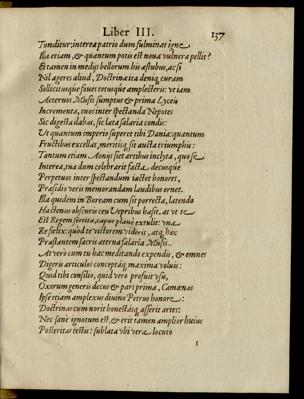 Liber III.
137
Tunditur: interea patrio dum fulminat igne
Illa etiam, & quantum potis est noua vulnera pellit?
Et tamen in medijs bellorum his æstubus, ac si
Nil ageres aliud, Doctrina ita deniq; curam
Sollicitusque foues totusque amplecteris: vt iam
Aeternos Musis sumptus & prima Lyceû
Incrementa, tuos inter spectanda Nepotes
Sic digesta dabas, sic lata salaria condis:
Vt quantum imperio superet tibi Dania: quantum
Fructibus excellat, meritisq; sit aucta triumphis:
Tantum etiam Aonijs siet artibus inclyta, quo se
Interea, tua dum celebrarit facta decusque
Perpetuos inter spectandum iactet honoret,
Præsidio veris memorandam laudibus ornet.
Illa quidem in Boream cum sit porrecta, latendo
Hactenus obscuris ceu Vepribus hæsit, at vt te
Est Regem sortita, caput planè extulit: vna
Re fœlix: quod te victorem videris, atq; hac
Præstantem sacris æterna salaria Musis.
At vero cum tu hac meditando expendis, & omnes
Digeris articulos conceptáq; maxima voluis:
Quid tibi consilio, quid vero profuit vsu,
Oxorum generis decus & pars prima, Camœnas
Ipse etiam amplexus diuino Petrus honore:
Doctrinas cum norit honestásq; asserit artes:
Nec sanè ignotum est, & erit tamen amplior huius
Posteritas testis: sublata vbi vera locuto